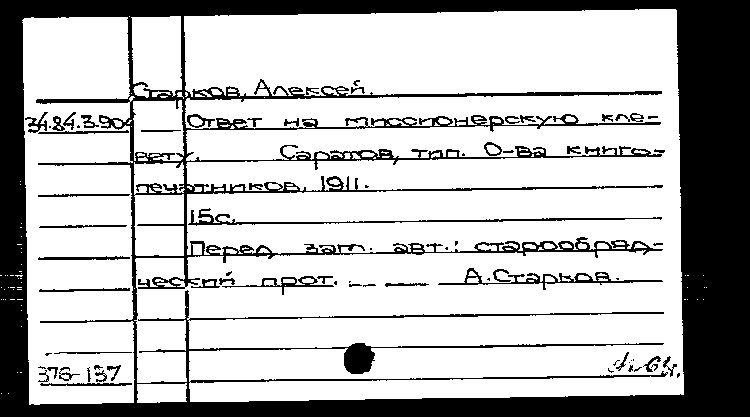 Старков, Алексей.
34.84.3.904 Ответ на миссионерскую кле-
вету. Саратов, тип. О-ва книго-
печатников, 1911.
15с.
Перед заг. авт.: старообряд-
ческий прот. — — А.Старков.
376-137